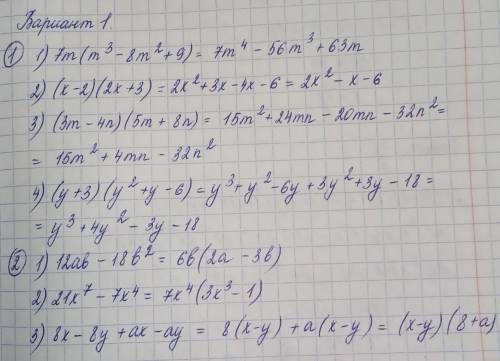 Вариант 1.
① 1) 7m(m³ - 8m² + 9) = 7m⁴ - 56m³ + 63m
2) (x-2)(2x+3) = 2x² + 3x - 4x - 6 = 2x² - x - 6
3) (3m - 4n)(5m + 8n) = 15m² + 24mn - 20mn - 32n² =
= 15m² + 4mn - 32n²
4) (y+3)(y² + y - 6) = y³ + y² - 6y + 3y² + 3y - 18 =
= y³ + 4y² - 3y - 18
② 1) 12ab - 18b² = 6b(2a - 3b)
2) 21x⁷ - 7x⁴ = 7x⁴(3x³ - 1)
3) 8x - 8y + ax - ay = 8(x-y) + a(x-y) = (x-y)(8+a)